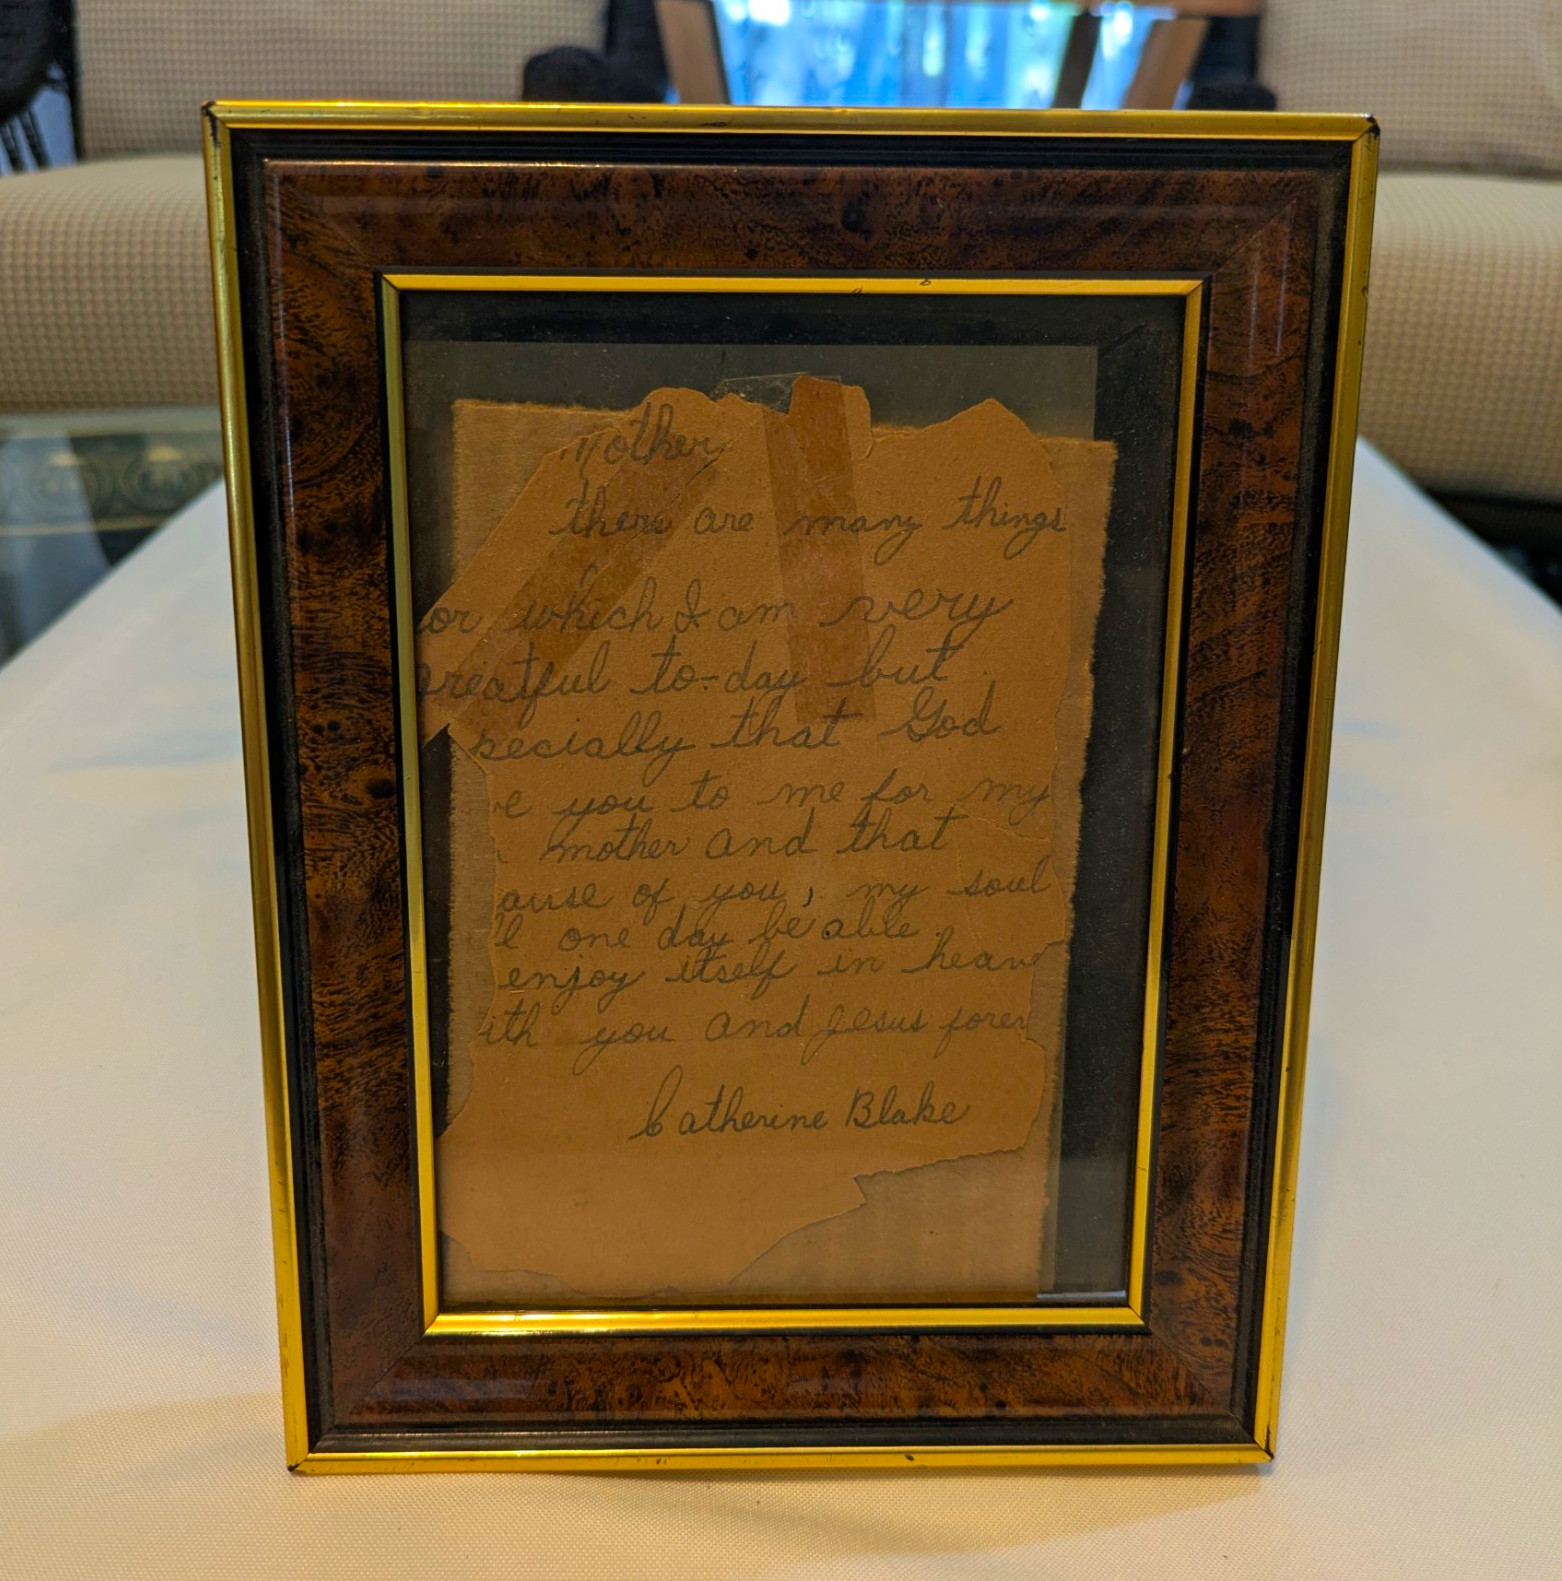 Mother
there are many things
or which I am very
greatful to-day but
pecially that God
e you to me for my
mother and that
ause of you, my soul
'l one day be able
enjoy itself in heave
ith you and Jesus forev
Catherine Blake